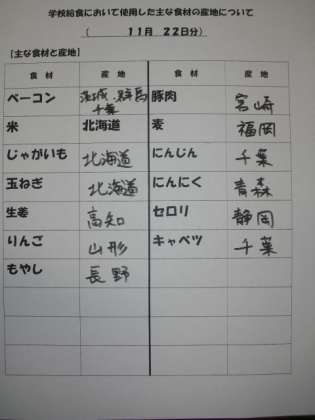 学校給食において使用した主な食材の産地について
( 11月 22日分)
[主な食材と産地]
食 材 産 地 食 材 産 地
ベーコン 茨城・群馬 千葉 豚肉 宮崎
米 北海道 麦 福岡
じゃがいも 北海道 にんじん 千葉
玉ねぎ 北海道 にんにく 青森
生姜 高知 セロリ 静岡
りんご 山形 キャベツ 千葉
もやし 長野